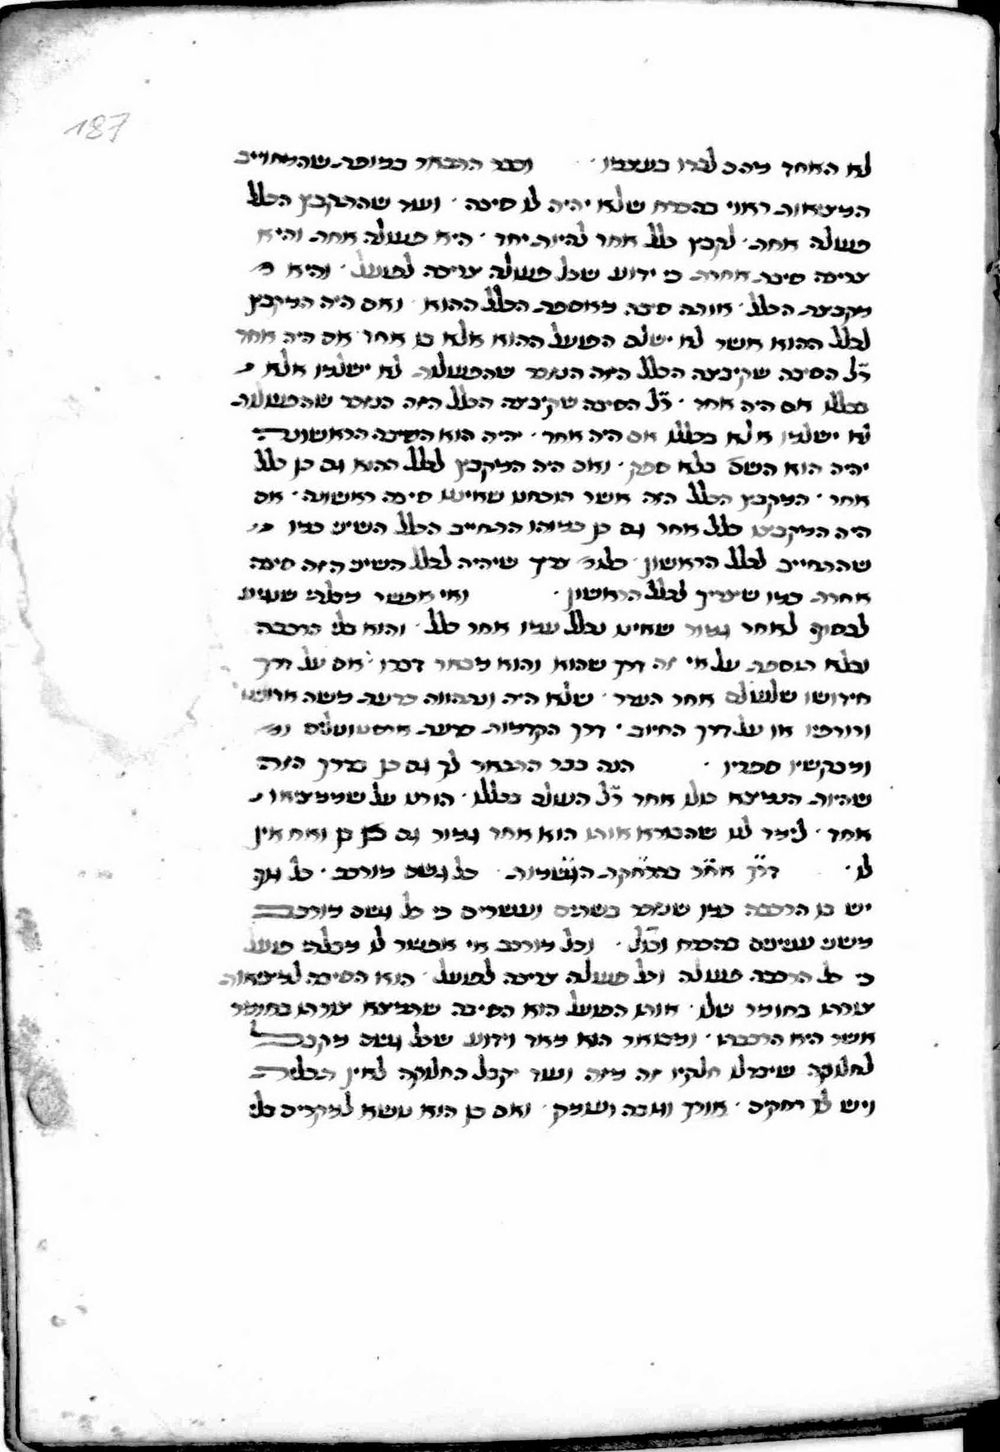 187
לא האחד מהם לבדו בעצמו · וכבר התבאר במופת שהמחוייב
המציאות ראוי בהכרח שלא יהיה לו סיבה · ועוד שההתקבץ הכלל
פעולה אחת · לקבץ כלל אחד להיות יחד · היא פעולה אחת והיא
צריכה סיבה אחרת כי ידוע שכל פעולה צריכה לפועל · והיא
מקבצת הכלל · אותה סיבה מאספת הכלל ההוא · ואם היה המקבץ
לכלל ההוא אשר לא ישלם הפועל ההוא אלא בו אחד אם היה אחד
ר״ל הסיבה שקיבצה הכלל הזה הנאמר שהפעולות לא ישלמו אלא
בכללו אם היה אחד · ר״ל הסיבה שקיבצה הכלל הזה הנאמר שהפעולות
לא ישלמו אלא בכללו אם היה אחד · יהיה הוא הסיבה הראשונה
יהיה הוא השם בלא ספק · ואם היה המקבץ לכלל ההוא גם כן כלל
אחד · המקבץ הכלל הזה אשר הונח שאיננו סיבה ראשונה · אם
היה המקבצו כלל אחר גם כן כמוהו התחייב הכלל השיני כמו
שהתחייב לכלל הראשון · כלומר צריך שיהיה לכלל השיני הזה סיבה
אחרת כמו שיצריך לכלל הראשון · ואי אפשר מבלתי שנגיע
לבסוף לאחד גמור שאין בכלל עמו אחר כלל · והוא בלי הרכבה
ובלא תוספת על אי זה דרך שהוא והוא מבואר דברו · אם על דרך
חידושו שלעולם אחר העדר · שלא היה ונתהווה כדעת משה אדונינו
ותורתיו או על דרך החיוב · דרך הקדמות כדעת אריסטוטלים
ומבקשיו ספריו · הנה כבר התבאר לך גם כן בדרך הזה
שהיות הנמצא כולו אחד ר״ל העולם בכללו · הורנו על שממציאו
אחד · לימד לנו שהבורא אותו הוא אחד גמור גם כן ואח אין
לו · דרך אחר בהרחקת הגשמות · כל גשם מורכב · כל גוף
יש בו הרכבה כמו שנאמר בשתים ועשרים כי כל גשם מורכב
משני ענינים בהכרח וכו׳ · וכל מורכב אי אפשר לו מבלתי פועל
כי כל הרכבה פעולה וכל פעולה צריכה לפועל · הוא הסיבה למציאות
צורתו בחומר שלו · אותו הפועל הוא הסיבה שהמציא צורתו בחומר
אשר היא הרכבתו · ומבואר הוא מאד וידוע שכל גשם מקבל
לחלוקה שיבדלו חלקיו זה מזה ועוד יקבל החלוקה לאין תכלית
ויש לו רחקים · אורך וגובה ועומק · ואם כן הוא נושא למקרים בלי